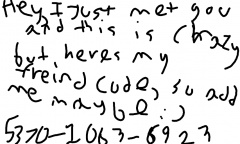 Hey I Just met you
and this is Crazy
but, heres my
freind code, so add
me maybe :)
5370-1063-6923